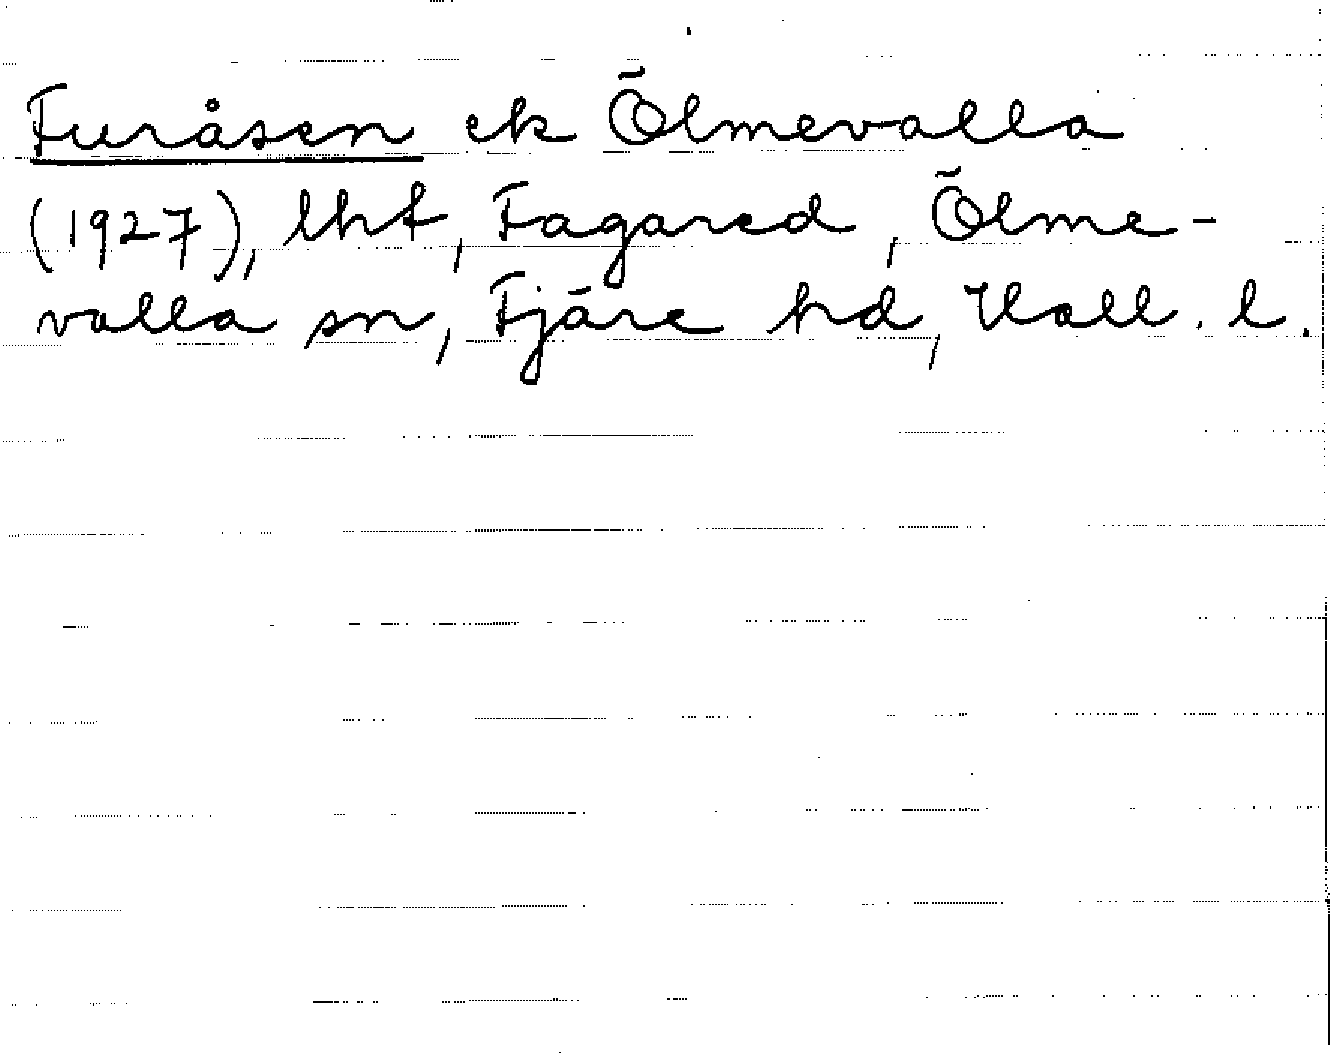 Furåsen ek Ölmevalla
(1927), lht, Fagared, Ölme-
valla sn, Fjäre hd, Hall. l.